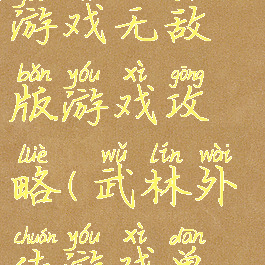 游戏无敌
bǎn yóu xì gōng
版游戏攻
lüè wǔ lín wài
略(武林外
chuán yóu xì dān
传游戏单